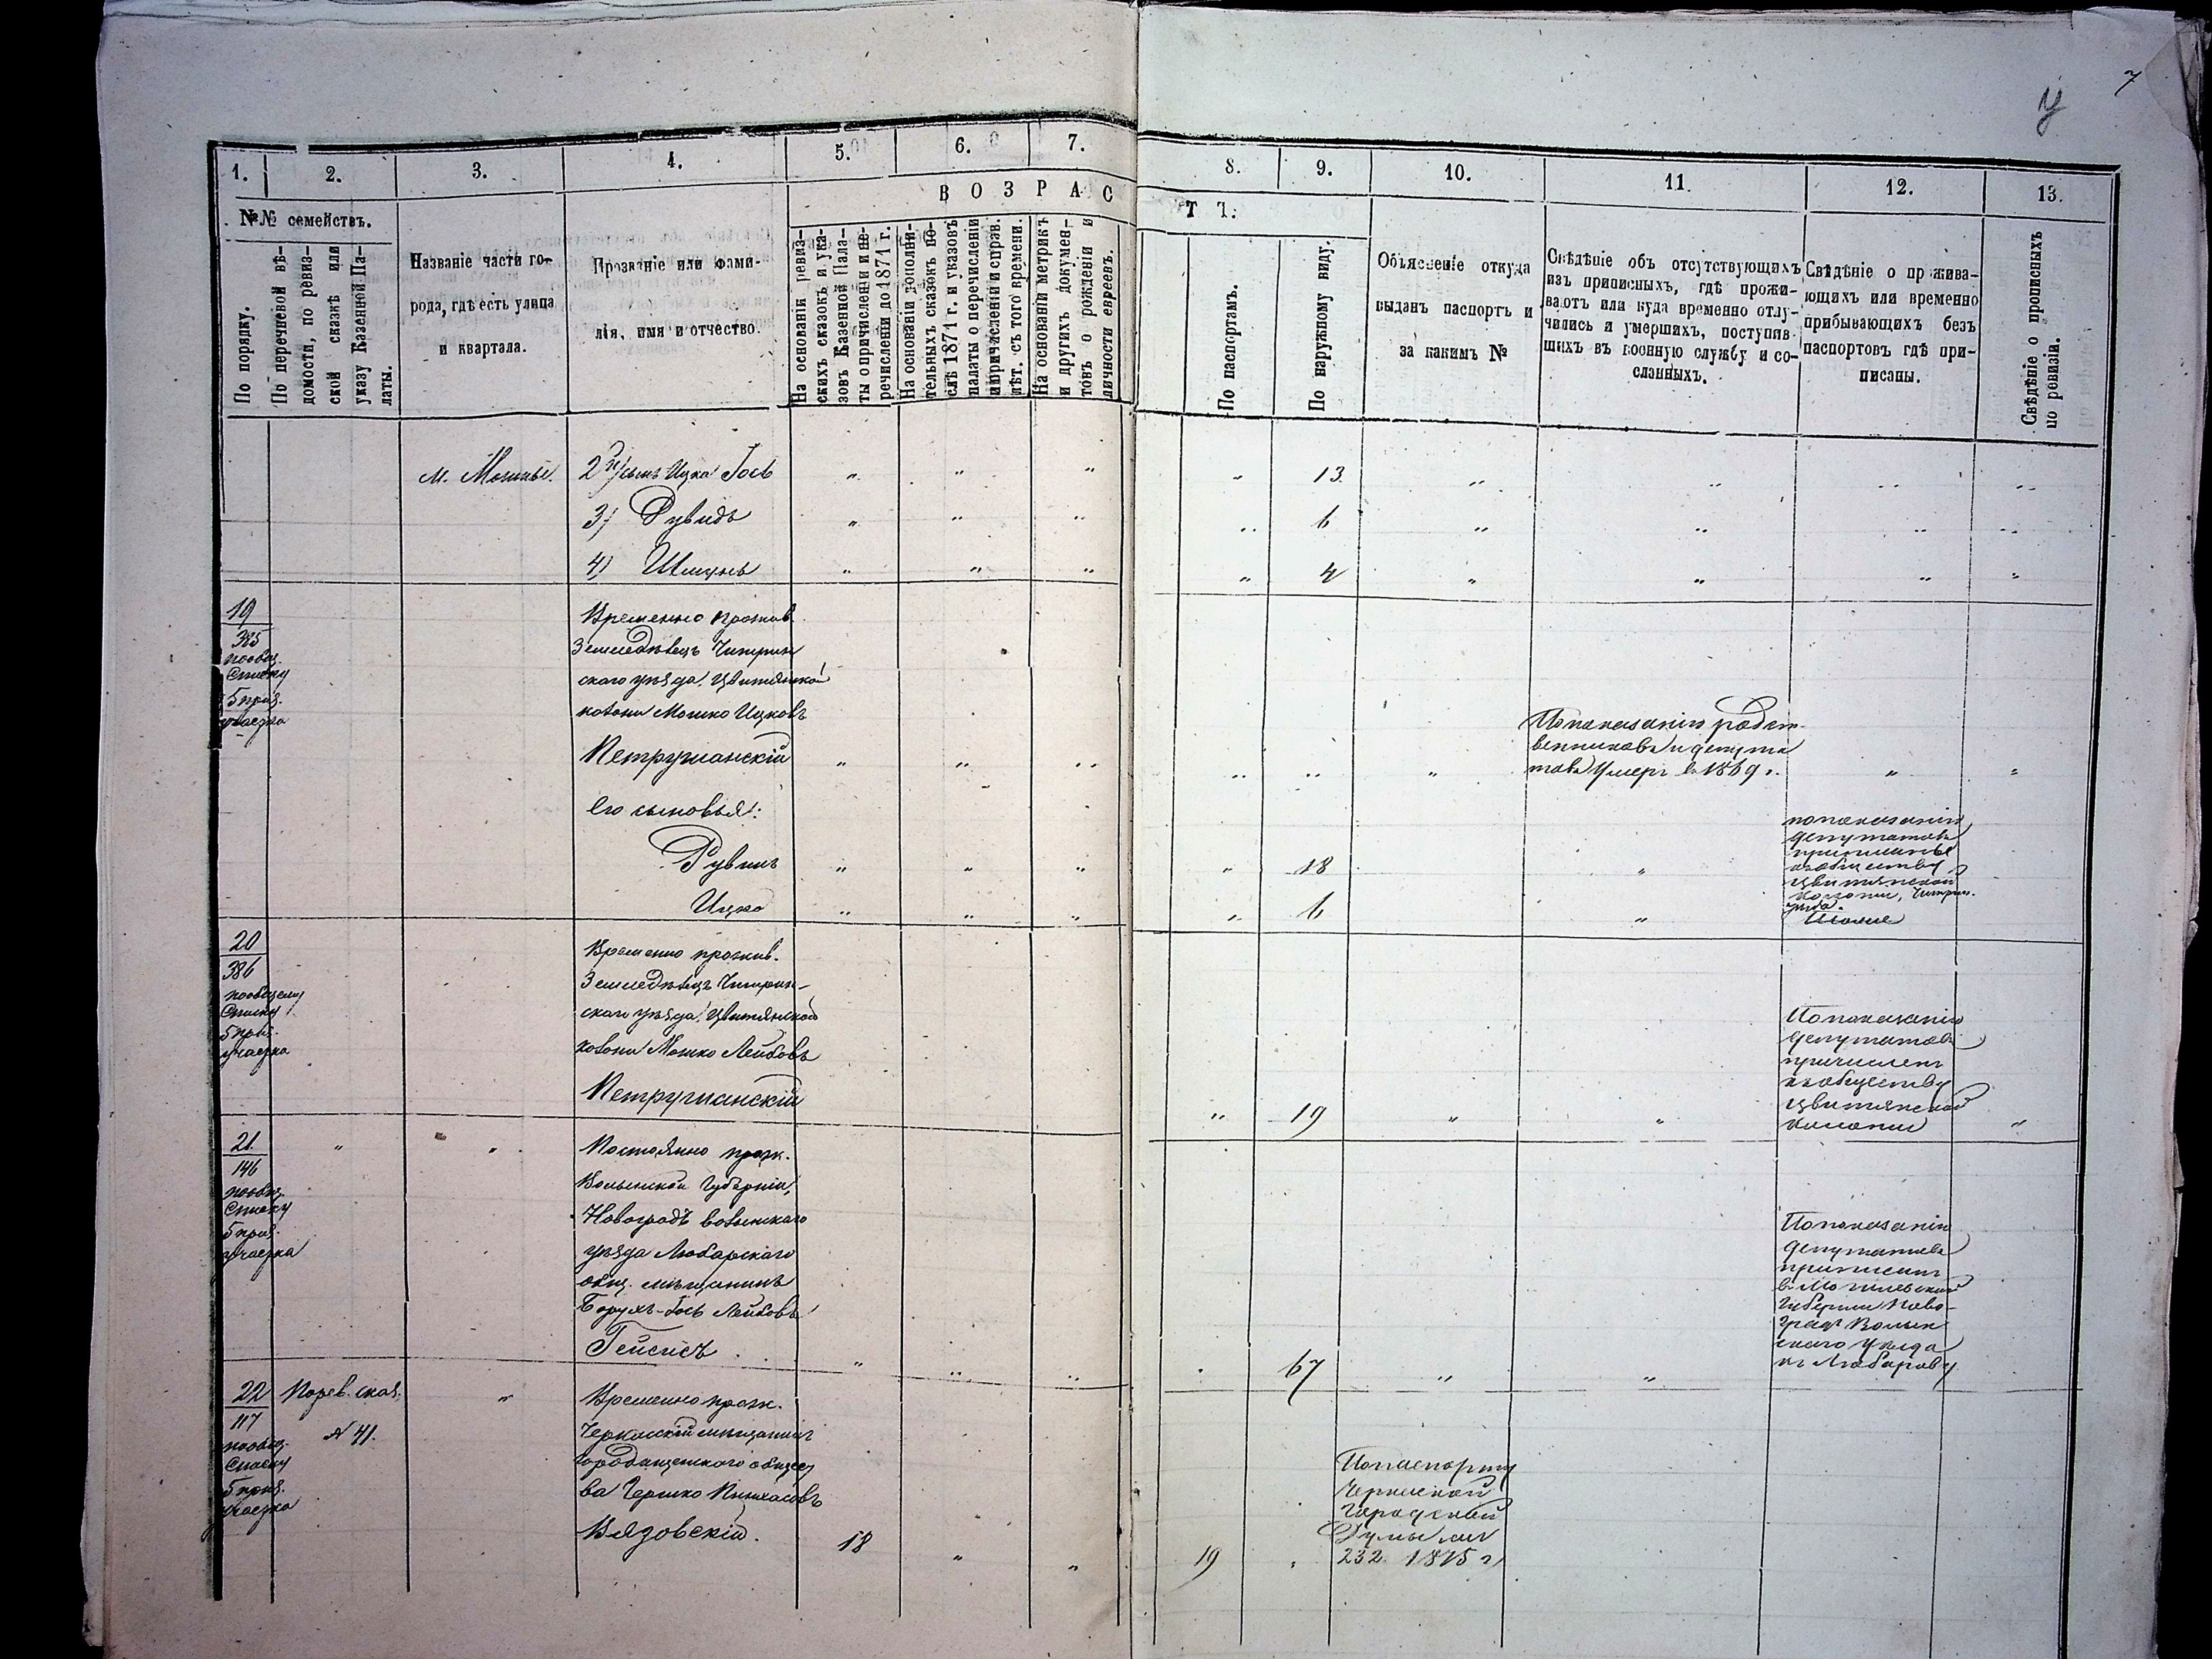 7
У
1.
2.
3.
4.
5.
6.
7.
8.
9.
10.
11.
12.
13.
№№ семействъ.
В О З Р А С
Т Ъ.
По порядку.
По перечневой вѣ-
домости, по ревиз-
ской сказкѣ или
указу Казенной Па-
латы.
Названіе части го-
рода, гдѣ есть улица
и квартала.
Прозваніе или фами-
лія, имя и отчество.
На основаніи ревиз-
скихъ сказокъ и ука-
зовъ Казенной Пала-
ты о причисленіи и пе-
речисленіи до 1871 г.
На основаніи дополни-
тельныхъ сказокъ по-
слѣ 1871 г. и указовъ
палаты о перечисленіи
и причисленіи и справ.
лѣт. съ того времени.
На основаніи метрикъ
и другихъ докумен-
товъ о рожденіи и
личности евреевъ.
По паспортамъ.
По наружному виду.
Объясненіе откуда
выданъ паспортъ и
за какимъ №
Свѣдѣніе объ отсутствующихъ
изъ приписныхъ, гдѣ прожи-
ваютъ или куда временно отлу-
чились и умершихъ, поступив-
шихъ въ военную службу и со-
сланныхъ.
Свѣдѣніе о прожива-
ющихъ или временно
прибывающихъ безъ
паспортовъ гдѣ при-
писаны.
Свѣдѣніе о прописныхъ
по ревизіи.
м. Мошны.
2й/ сынъ Ицка Іось " " " " 13 " " " "
3/ Рувидъ " " " " 6 " " " "
4) Шмунь " " " " 4 " " " "
19
385
пообщ.
Списку
5 приз.
участка
Временно прожив.
Земледѣлецъ Чигирин
скаго уѣзда, Цвитянской
колони Мошко Ицковъ
Петрушанскій " " " " " "
По показанію родст
венниковъ и депута
товъ умеръ в 1869 г. " "
Его сыновья:
Рувинъ " " " " 18 "
Ицко " " " " 6 "
по показанію
депутатовъ
приписаны
къ обществу
Цвитянской
колоніи, Чигирин.
уѣзда.
20
386
пообщему
Списку
5 приз.
участка
Временно прожив.
Земледѣлецъ Чигирин-
скаго уѣзда, Цвитянской
колони Мошко Лейбовъ
Петрушанскій " 19 " "
По показанію
депутатовъ
причисленъ
къ обществу
Цвитянской
колоніи "
21
146
пообщ.
Списку
5 приз.
участка
" "
Постоянно прож.
Волынской Губерніи,
Новоградъ волынскаго
уѣзда Любарскаго
общ. мѣщанинъ
Борухъ-Іось Лейбовъ
Гейсисъ " " " " 67 " "
По показанію
депутатовъ
приписанъ
в Могилевской
Губерніи Ново-
градъ Волын
скаго уѣзда
къ Любарову
22
117
пообщ.
Списку
5 приз.
участка
По рев. сказ.
№ 41.
"
Временно прож.
Черкасскій мѣщанинъ
Городищенскаго общест
ва Гершко Пинхасовъ
Вязовскій. 18 " " 19 "
По паспорту
Черкаской
Городской
Думы за №
232 1875 г.